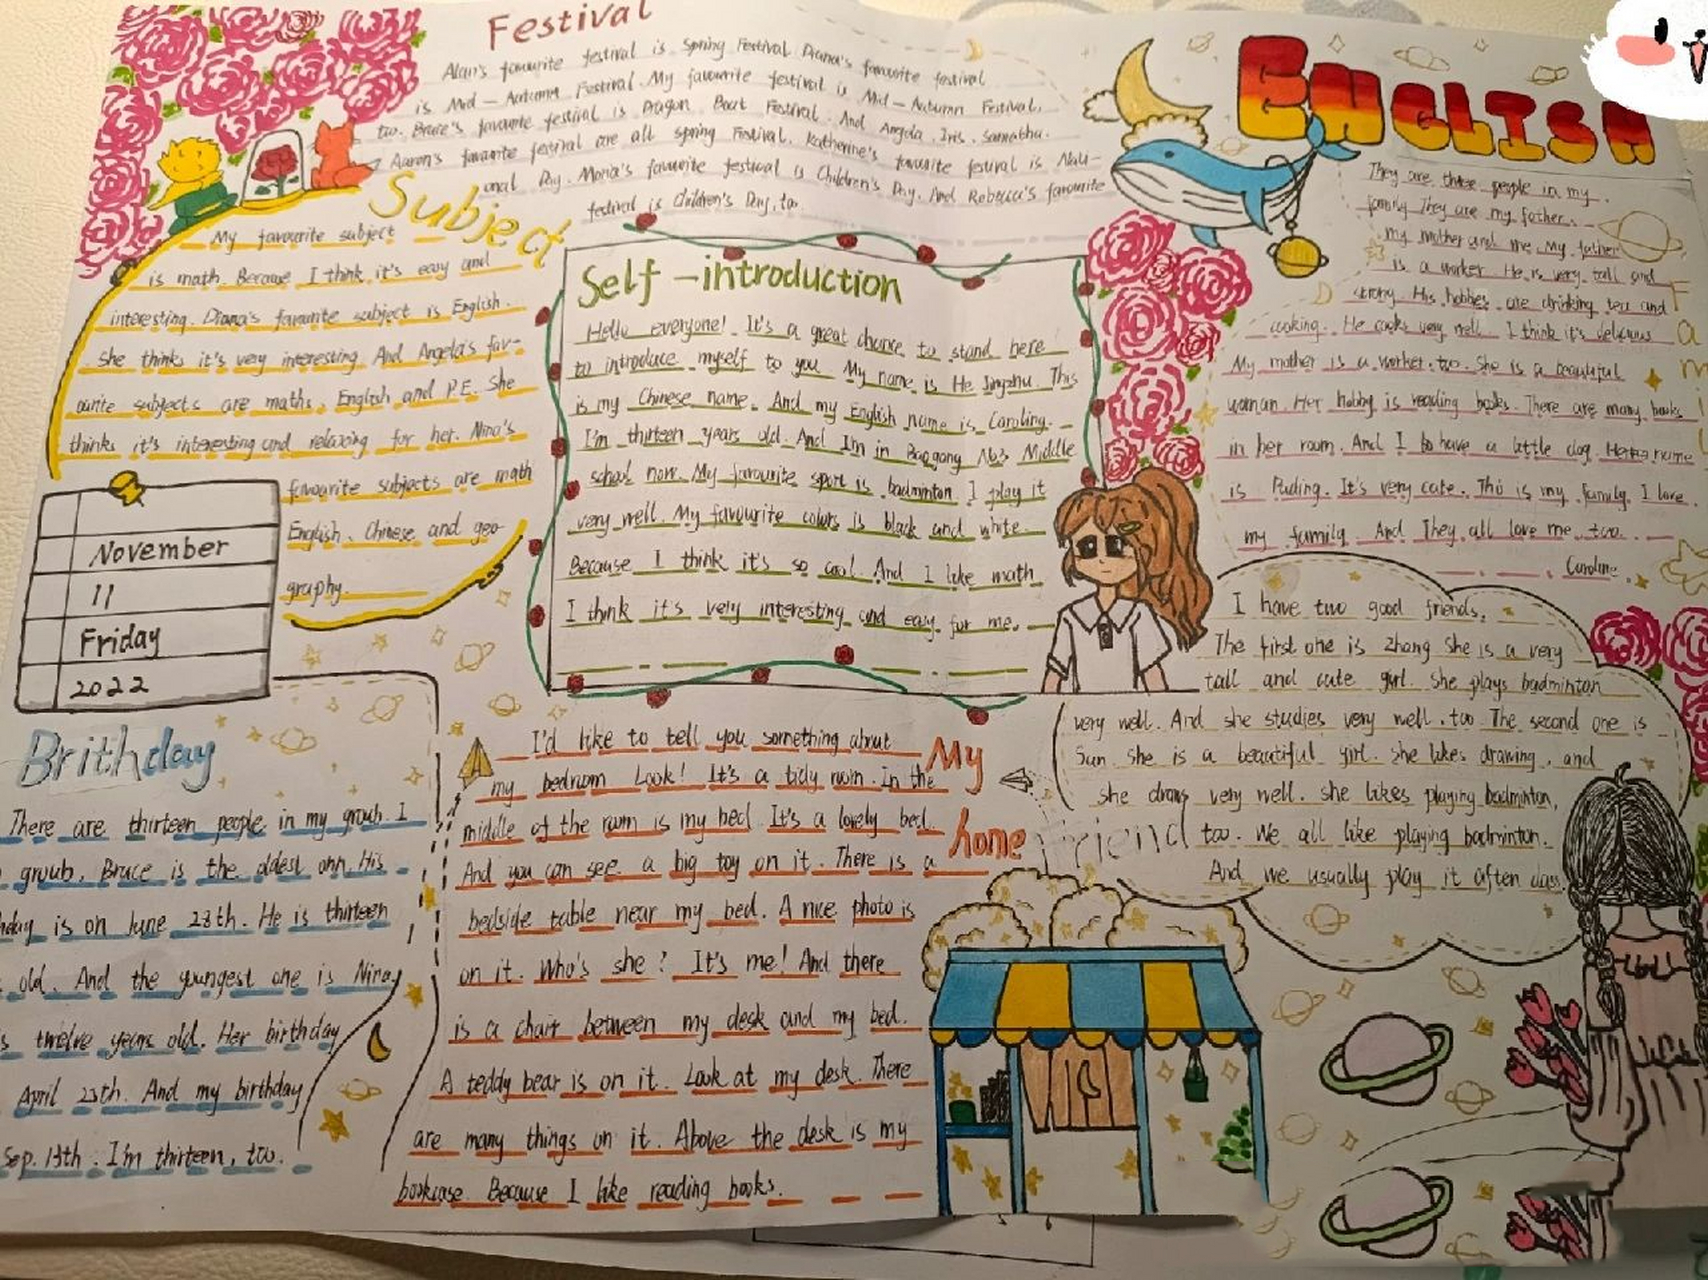 Festival
Alan's favourite festival is Spring Festival Diana's favourite festival
is Mid-Autumn Festival. My favourite festival is Mid-Autumn Festival,
too. Bruce's favourite festival is Dragon Boat Festival. And Angela, Iris,
Aaron's favourite festival are all spring Festival. Katherine's favourite festival is Nati-
onal Day. Maria's favourite festival is Children's Day. And Rebecca's favourite
festival is Children's Day, too.
Subject
My favourite subject
is math. Because I think it's easy and
interesting. Diana's favourite subject is English.
She thinks it's very interesting. And Angela's fav-
ourite subjects are maths, English and P.E. She
thinks it's interesting and relaxing for her. Nina's
favourite subjects are math
English, Chinese and geo-
graphy.
November
11
Friday
2022
Brithday
There are thirteen people in my groub. I
groub, Bruce is the oldest onn. His
hday is on June 28th. He is thirteen
old. And the youngest one is Nina,
s twelve years old. Her birthday
April 23th. And my birthday
Sep. 13th. I'm thirteen, too.
Self-introduction
Hello everyone! It's a great chance to stand here
to introduce myself to you My name is He Jingzhu. This
is my Chinese name. And my English name is Caroling.
I'm thirteen years old. And I'm in Baogang No.3 Middle
school now. My favourite sport is badminton I play it
very well. My favourite colors is black and white.
Because I think it's so cool. And I like math
I think it's very interesting and easy for me.
My
home
I'd like to tell you something about
my bedroom Look! It's a tidy room. In the
middle of the room is my bed It's a lovely bed.
And you can see a big toy on it. There is a
bedside table near my bed. A nice photo is
on it. Who's she? It's me! And there
is a chair between my desk and my bed.
A teddy bear is on it. Look at my desk. There
are many things on it. Above the desk is my
bookcase. Because I like reading books.
ENGLISH
They are three people in my
family They are my father,
my mother and me. My father
is a worker. He is very tall and
strong. His hobbies are drinking tea and
cooking. He cooks very well. I think it's delicious
My mother is a worker, too. She is a beautiful
woman. Her hobby is reading books. There are many books
in her room. And I have a little dog. name
is Puding. It's very cute. This is my family. I love
my family. And They all love me, too.
Caroline.
Friend
I have two good friends.
The first one is Zhang She is a very
tall and cute girl. She plays badminton
very well. And she studies very well, too. The second one is
Sun. She is a beautiful girl. She likes drawing, and
she draws very well. She likes playing badminton,
too. We all like playing badminton.
And we usually play it aften class.